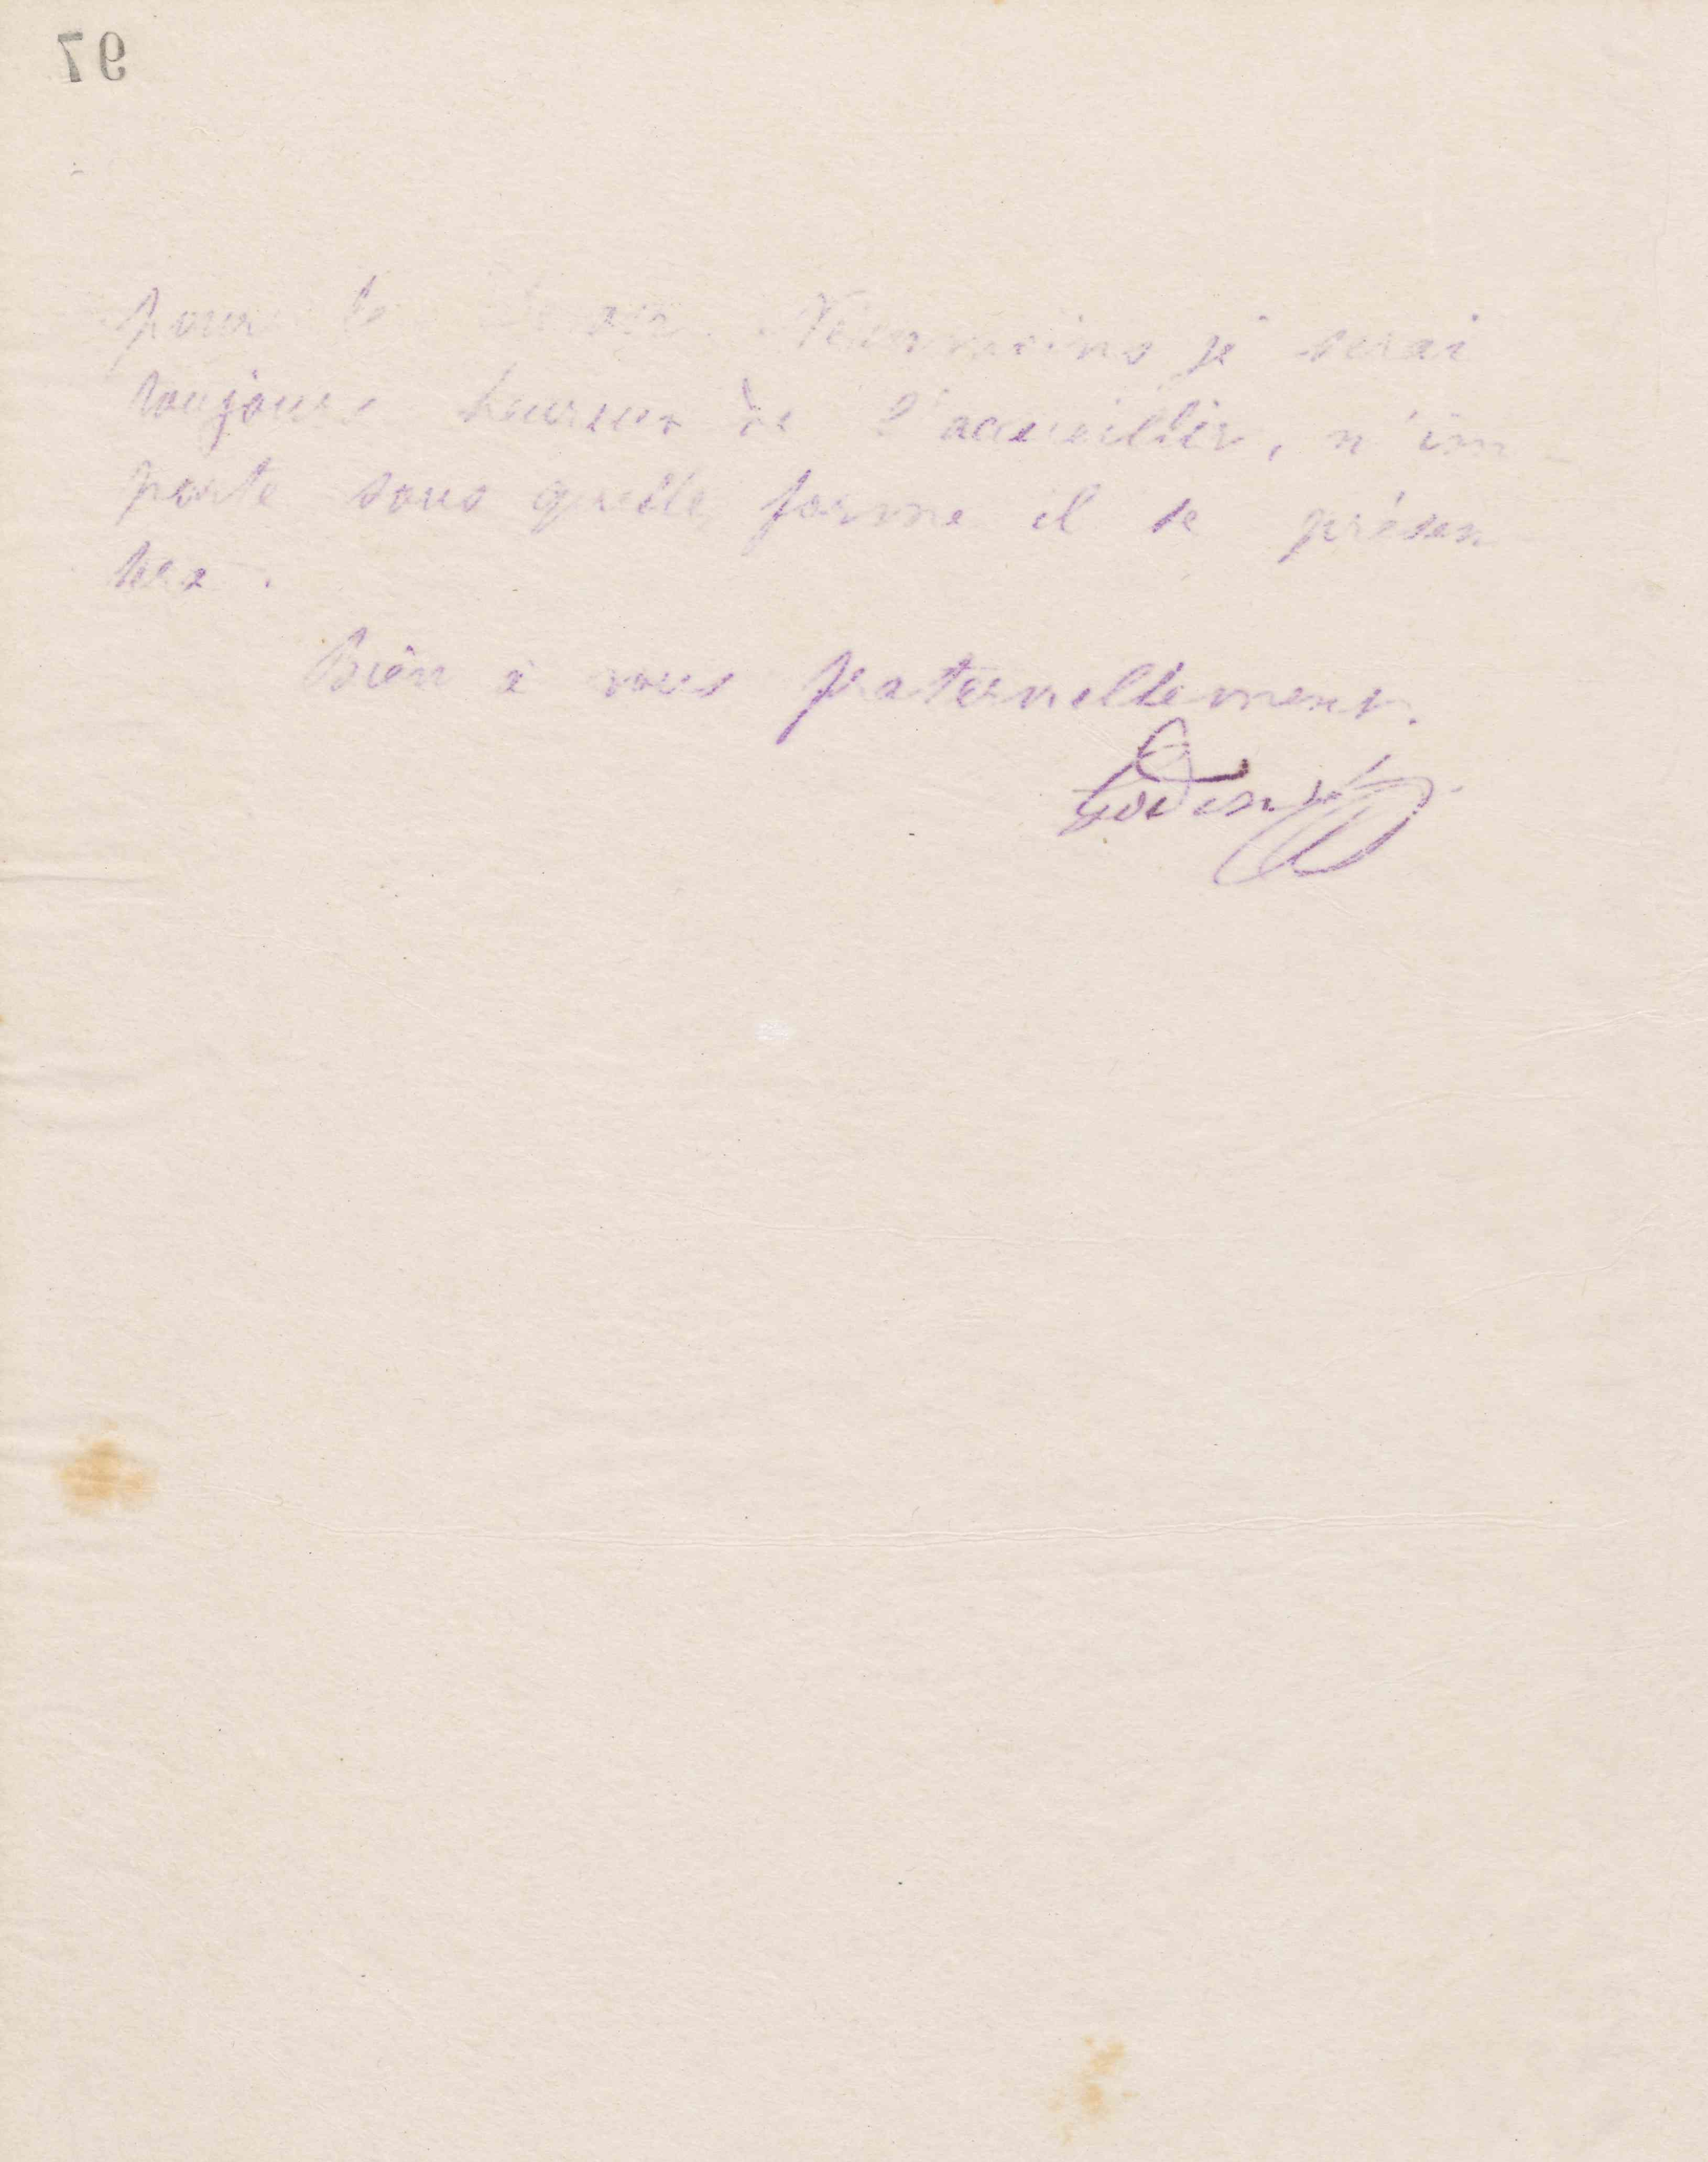 97
pour le Devoir. Néanmoins je serai
toujours heureux de l'accueillir, n'im-
porte sous quelle forme il se présen-
tera.
Bien à vous fraternellement.
Godin